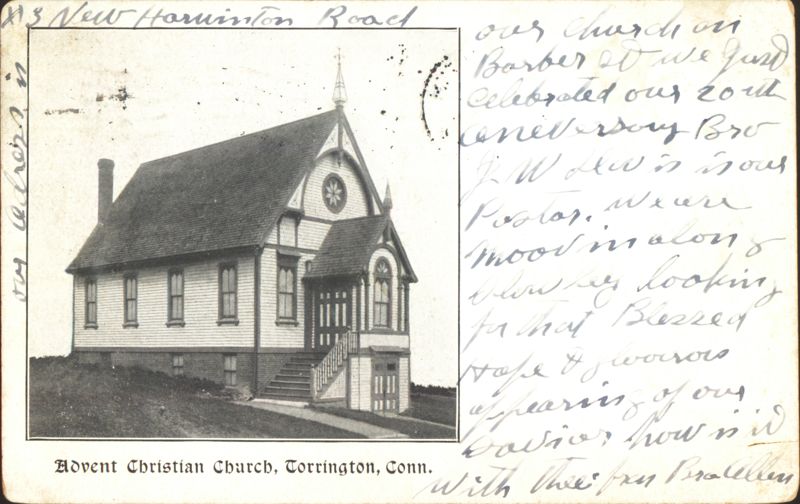 #3 New Harwinton Road
our adress is
our church on
Barber St we Just
celebrated our 20nth
anneversary Bro
J W Lewis is our
Pastor. We are
moovin along
slowley looking
for that Blessed
Hope & glorious
appearing of our
savior how is it
with thee fr Bro Allen
Advent Christian Church, Torrington, Conn.